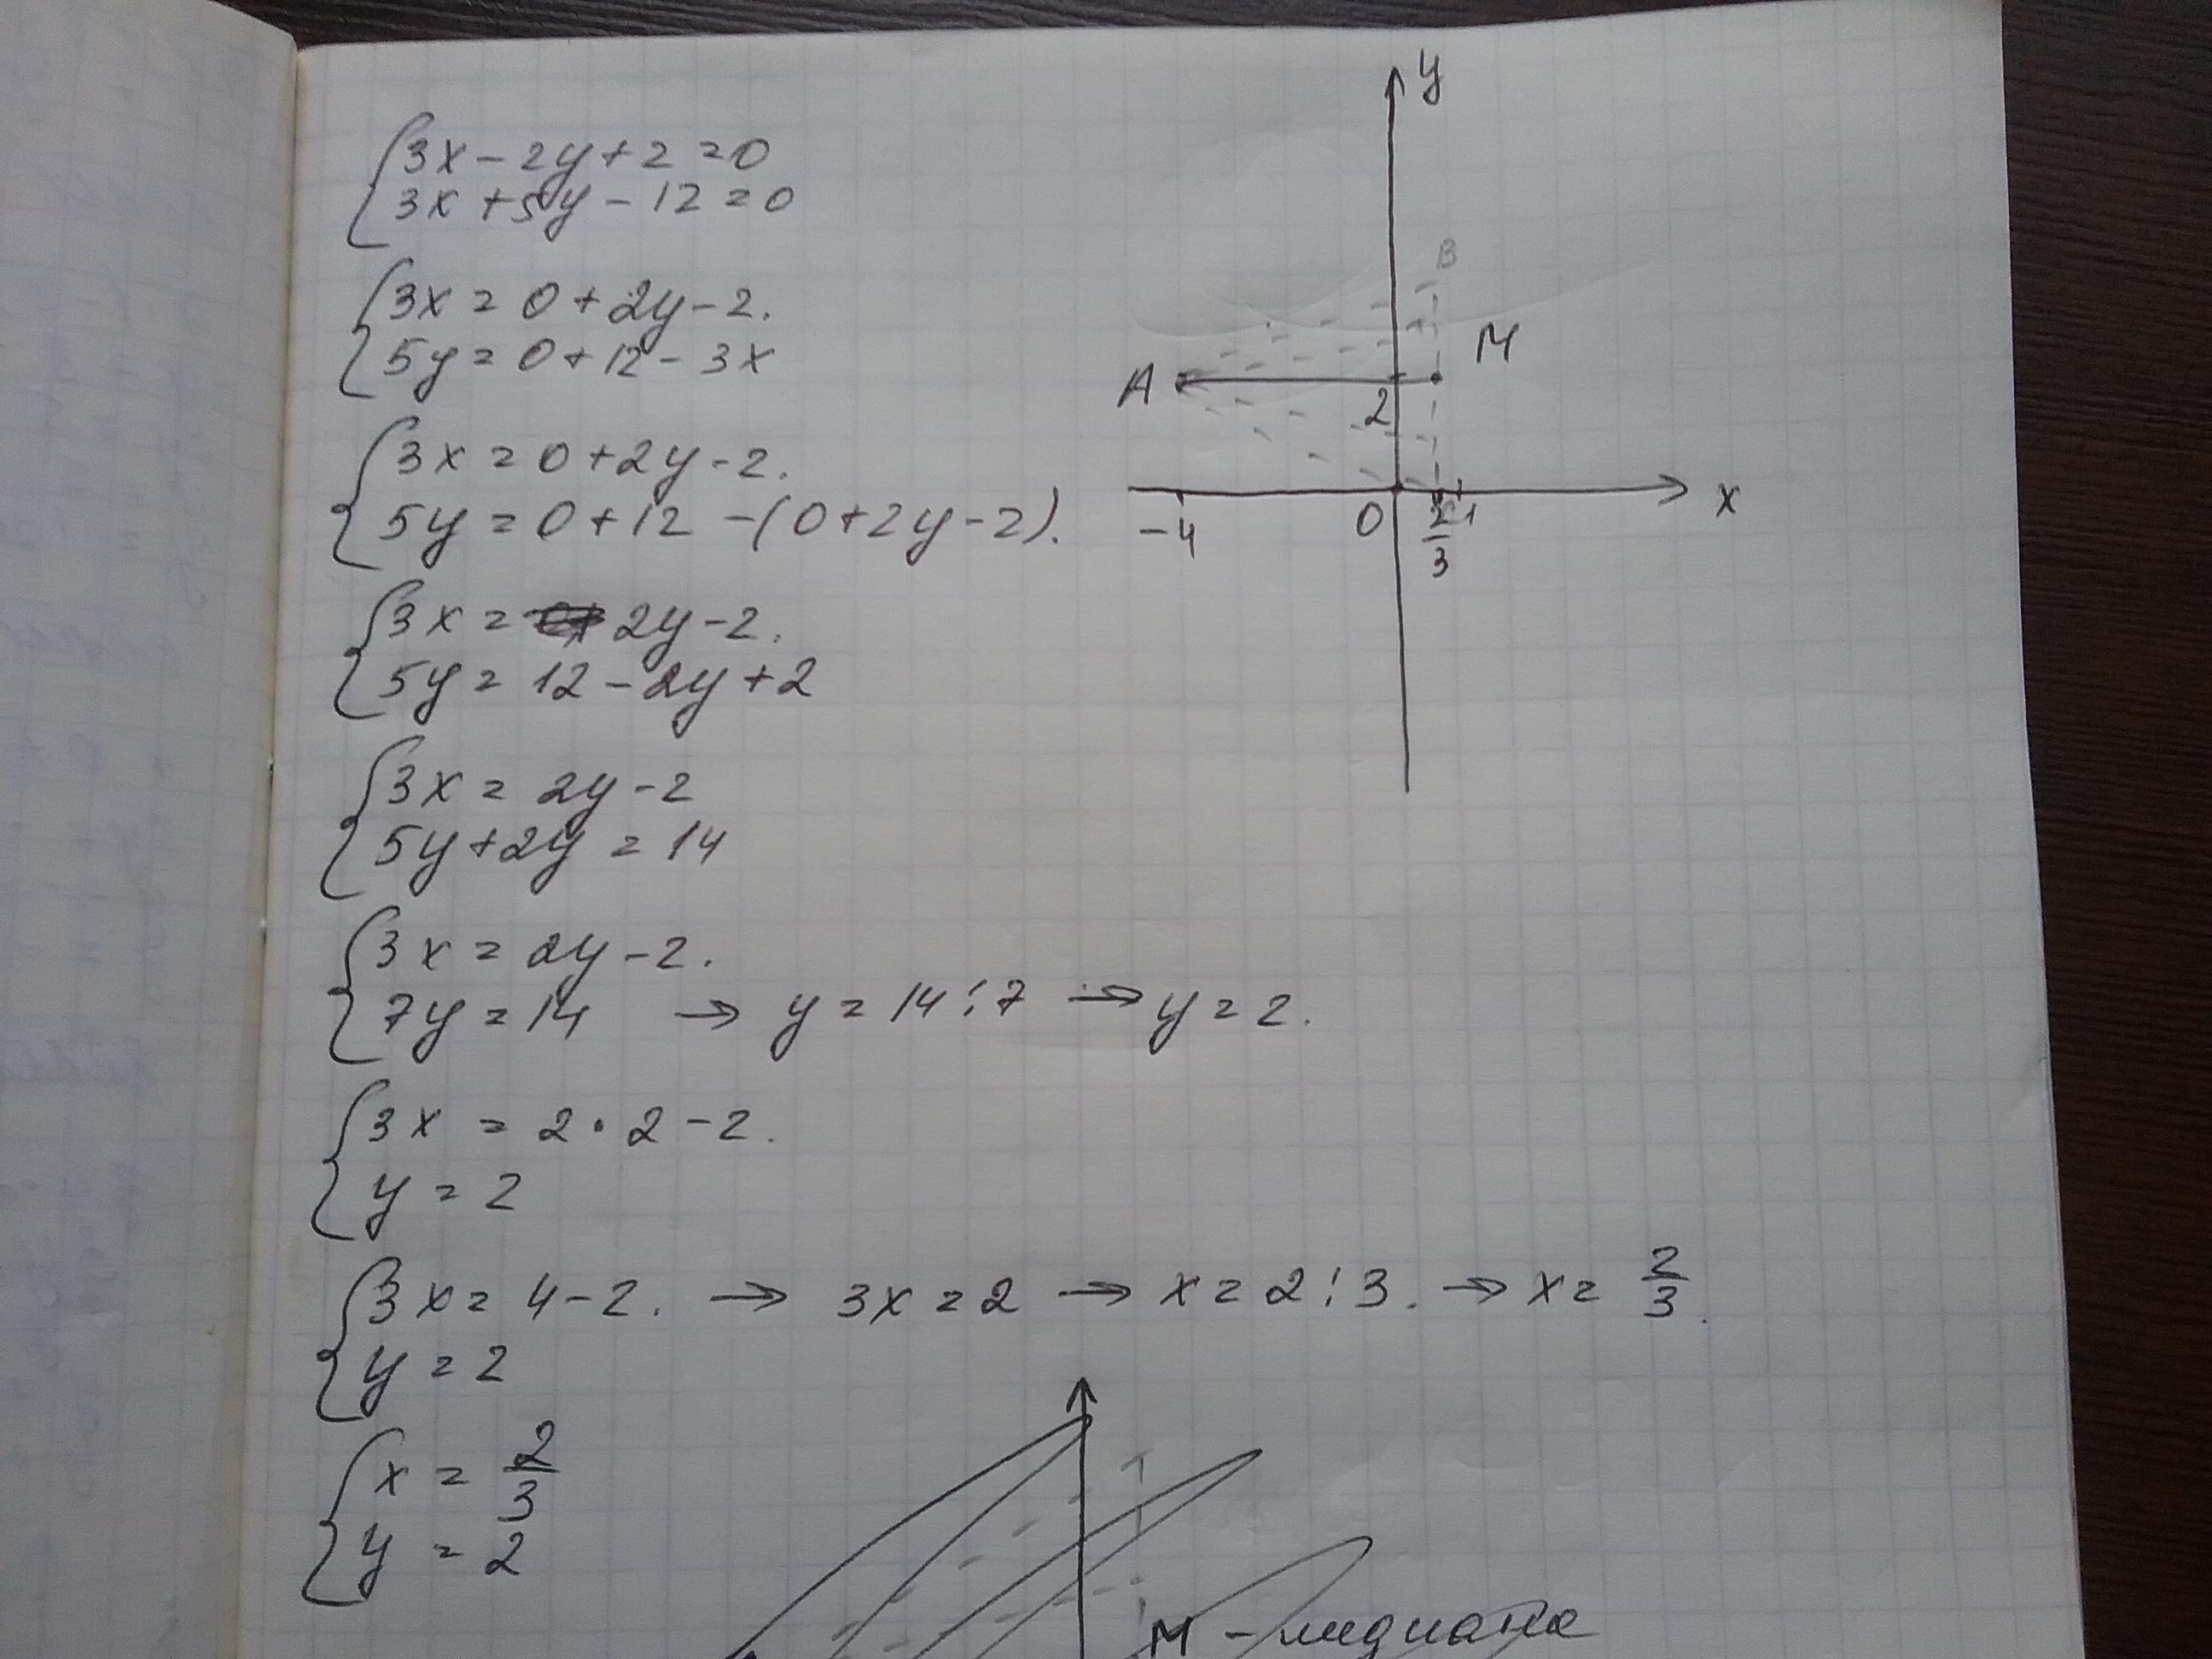 3x - 2y + 2 = 0
3x + 5y - 12 = 0
3x = 0 + 2y - 2.
5y = 0 + 12 - 3x
3x = 0 + 2y - 2.
5y = 0 + 12 - (0 + 2y - 2).
3x = 2y - 2.
5y = 12 - 2y + 2
3x = 2y - 2
5y + 2y = 14
3x = 2y - 2.
7y = 14 → y = 14 : 7 → y = 2.
3x = 2 · 2 - 2.
y = 2
3x = 4 - 2. → 3x = 2 → x = 2 : 3. → x = 2/3.
y = 2
x = 2/3
y = 2
y
B
M
A
2
x
-4
0
2/3
1
M - медиана